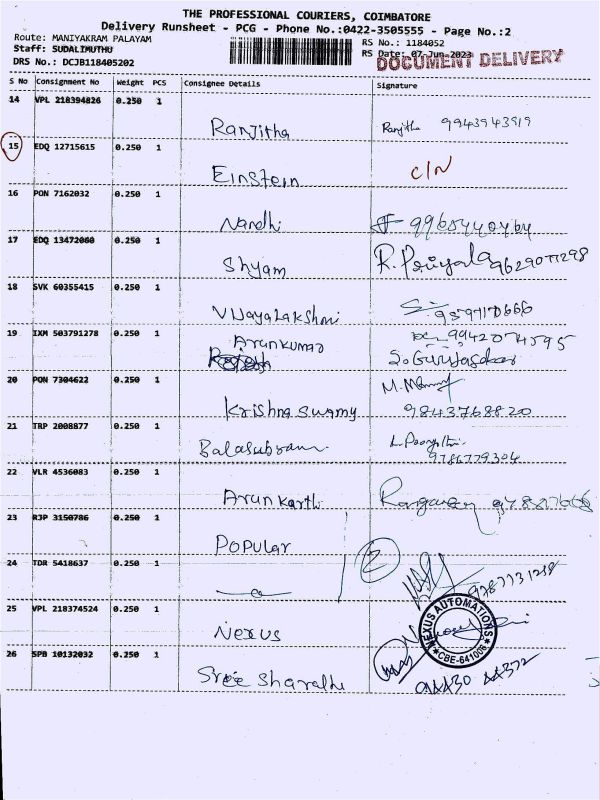 THE PROFESSIONAL COURIERS, COIMBATORE
Delivery Runsheet - PCG - Phone No.:0422-3505555 - Page No.:2
Route: MANIYAKRAM PALAYAM
RS No.: 1184052
Staff: SUDALIMUTHU
RS Date: 07-Jun-2023
DOCUMENT DELIVERY
DRS No.: DCJB118405202
S No Consignment No Weight PCS Consignee Details Signature
14 VPL 218394826 0.250 1
Ranjitha Ranjitha 9943943919
15 EDQ 12715615 0.250 1
Einstein C/N
16 PON 7162032 0.250 1
Nandhi 9965440464
17 EDQ 13472060 0.250 1
Shyam R. Priyala 9629077298
18 SVK 60355415 0.250 1
Vijayalakshmi 9597170666
19 IXM 503791278 0.250 1
Arunkumar 9942074595
20 PON 7304622 0.250 1
Krishna swamy 9843768820
21 TRP 2008877 0.250 1
Balasubram
9786779304
22 VLR 4536083 0.250 1
Arun Karthi
23 RJP 3150786 0.250 1
Popular
24 TDR 5418637 0.250 1
2
9787731218
25 VPL 218374524 0.250 1
Nexus
NEXUS AUTOMATIONS
CBE-641006
26 SPB 10132032 0.250 1
Sree Sharadhi